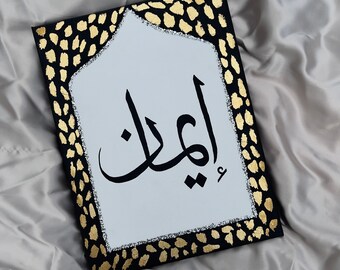 إيمان